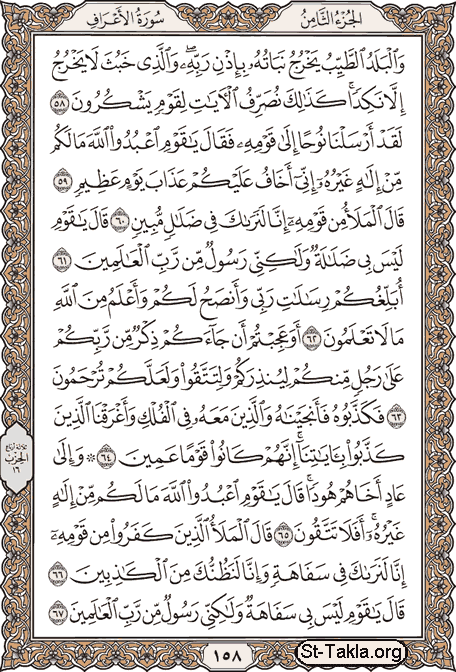 سُورَةُ الأَعْرَافِ الجُزْءُ الثَّامِنُ
وَٱلْبَلَدُ ٱلطَّيِّبُ يَخْرُجُ نَبَاتُهُۥ بِإِذْنِ رَبِّهِۦ ۖ وَٱلَّذِى خَبُثَ لَا يَخْرُجُ
إِلَّا نَكِدًا ۚ كَذَٰلِكَ نُصَرِّفُ ٱلْـَٔايَٰتِ لِقَوْمٍ يَشْكُرُونَ ٥٨
لَقَدْ أَرْسَلْنَا نُوحًا إِلَىٰ قَوْمِهِۦ فَقَالَ يَٰقَوْمِ ٱعْبُدُوا۟ ٱللَّهَ مَا لَكُم
مِّنْ إِلَٰهٍ غَيْرُهُۥٓ إِنِّىٓ أَخَافُ عَلَيْكُمْ عَذَابَ يَوْمٍ عَظِيمٍ ٥٩
قَالَ ٱلْمَلَأُ مِن قَوْمِهِۦٓ إِنَّا لَنَرَىٰكَ فِى ضَلَٰلٍ مُّبِينٍ ٦٠ قَالَ يَٰقَوْمِ
لَيْسَ بِى ضَلَٰلَةٌ وَلَٰكِنِّى رَسُولٌ مِّن رَّبِّ ٱلْعَٰلَمِينَ ٦١
أُبَلِّغُكُمْ رِسَٰلَٰتِ رَبِّى وَأَنصَحُ لَكُمْ وَأَعْلَمُ مِنَ ٱللَّهِ
مَا لَا تَعْلَمُونَ ٦٢ أَوَعَجِبْتُمْ أَن جَآءَكُمْ ذِكْرٌ مِّن رَّبِّكُمْ
عَلَىٰ رَجُلٍ مِّنكُمْ لِيُنذِرَكُمْ وَلِتَتَّقُوا۟ وَلَعَلَّكُمْ تُرْحَمُونَ
٦٣ فَكَذَّبُوهُ فَأَنجَيْنَٰهُ وَٱلَّذِينَ مَعَهُۥ فِى ٱلْفُلْكِ وَأَغْرَقْنَا ٱلَّذِينَ
كَذَّبُوا۟ بِـَٔايَٰتِنَآ ۚ إِنَّهُمْ كَانُوا۟ قَوْمًا عَمِينَ ٦٤ ۞ وَإِلَىٰ
عَادٍ أَخَاهُمْ هُودًا ۗ قَالَ يَٰقَوْمِ ٱعْبُدُوا۟ ٱللَّهَ مَا لَكُم مِّنْ إِلَٰهٍ
غَيْرُهُۥٓ ۚ أَفَلَا تَتَّقُونَ ٦٥ قَالَ ٱلْمَلَأُ ٱلَّذِينَ كَفَرُوا۟ مِن قَوْمِهِۦٓ
إِنَّا لَنَرَىٰكَ فِى سَفَاهَةٍ وَإِنَّا لَنَظُنُّكَ مِنَ ٱلْكَٰذِبِينَ ٦٦
قَالَ يَٰقَوْمِ لَيْسَ بِى سَفَاهَةٌ وَلَٰكِنِّى رَسُولٌ مِّن رَّبِّ ٱلْعَٰلَمِينَ ٦٧
ثلاثة أرباع
الحزب
١٦
١٥٨
St-Takla.org